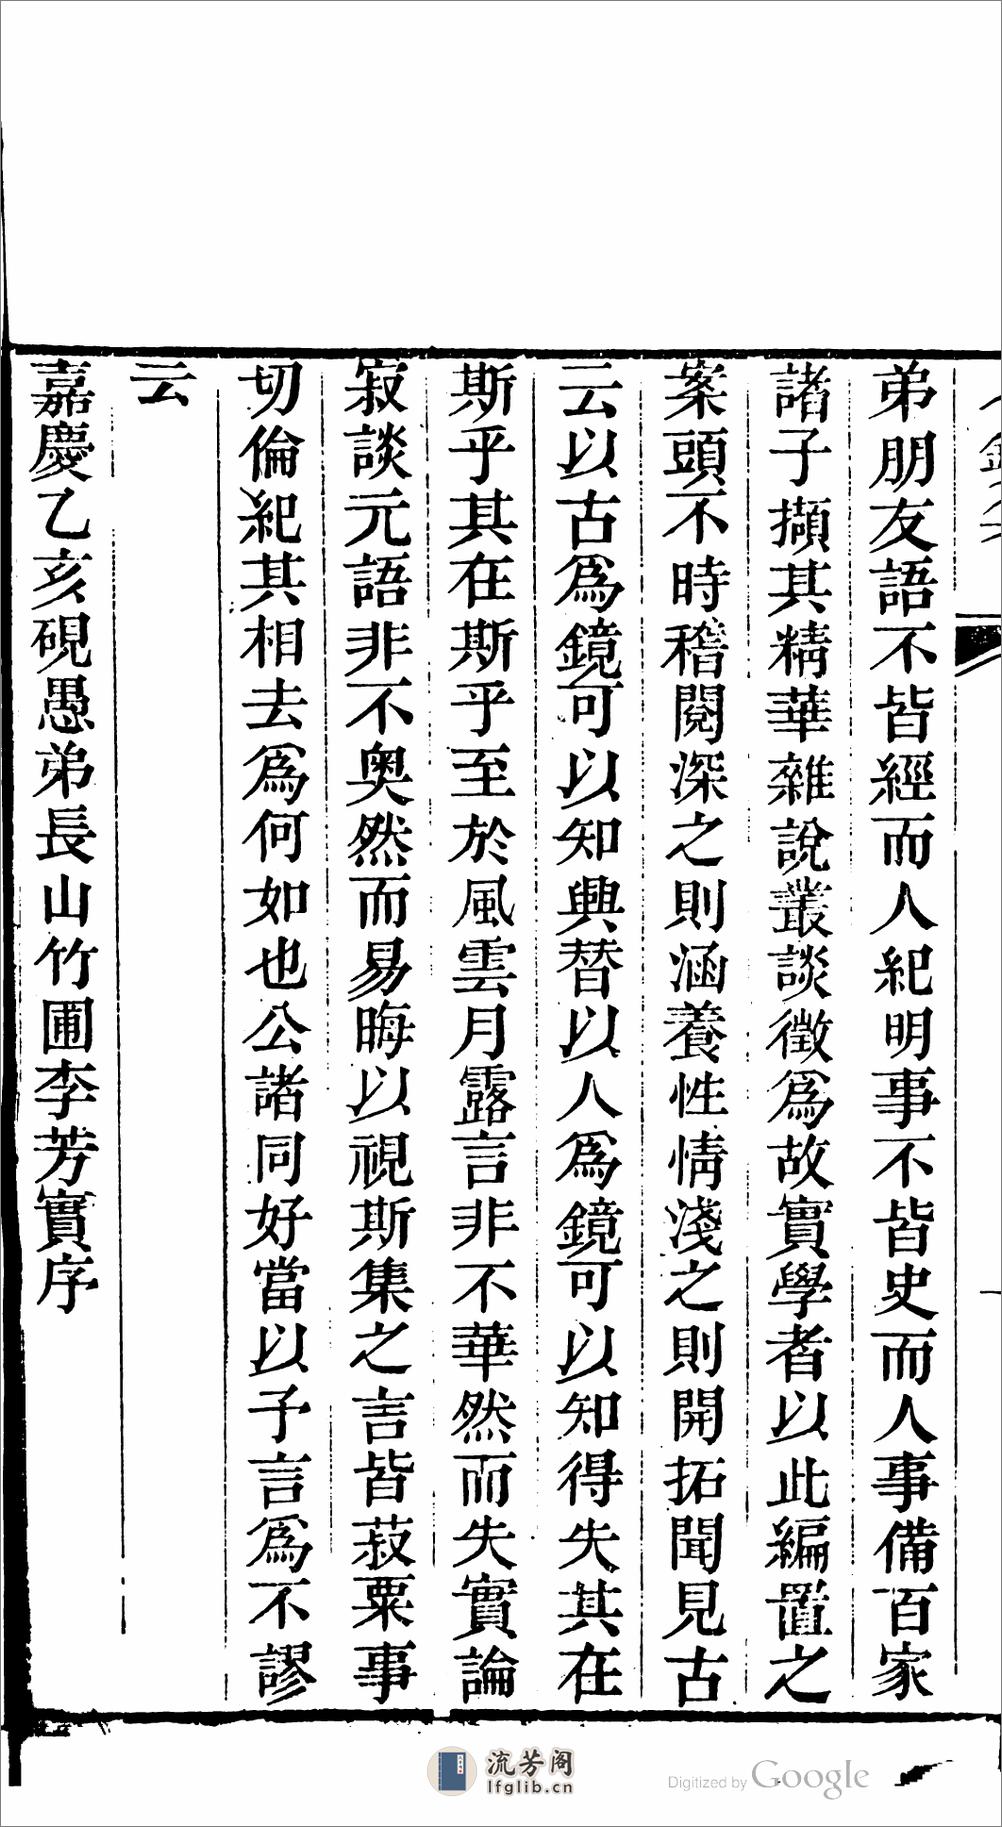 弟朋友語不皆經而人紀明事不皆史而人事備百家
諸子擷其精華雜說叢談徵爲故實學者以此編置之
案頭不時稽閱深之則涵養性情淺之則開拓聞見古
云以古爲鏡可以知興替以人爲鏡可以知得失其在
斯乎其在斯乎至於風雲月露言非不華然而失實論
寂談元語非不奧然而易晦以視斯集之言皆菽粟事
切倫紀其相去爲何如也公諸同好當以予言爲不謬
云
嘉慶乙亥硯愚弟長山竹圃李芳實序
流芳阁
lfglib.cn
Digitized by Google